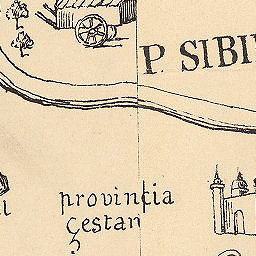 P. SIBI
provintia
çestan